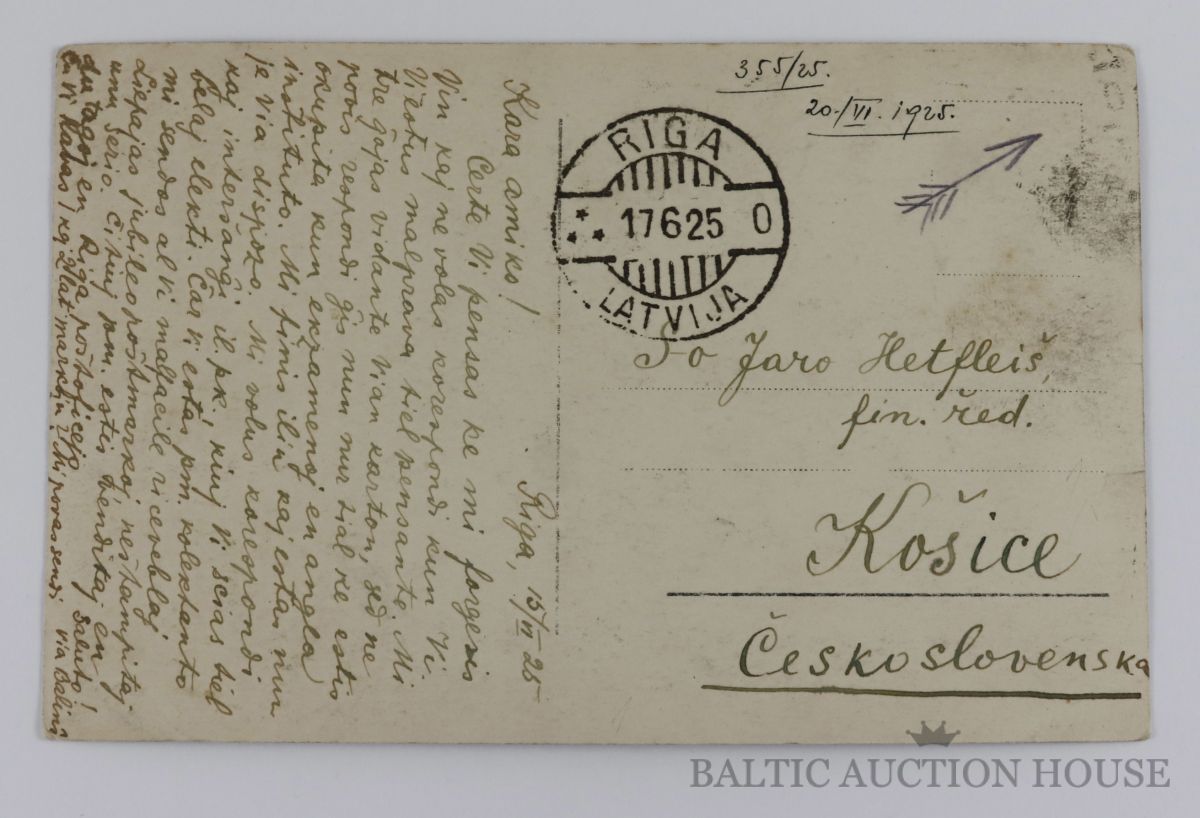 355/25.
20./VI. 1925.
RIGA
17625 O
LATVIJA
To Jaro Hetfleiš,
fin. řed.
Košice
Československa
Riga, 15/VI 25
Kara amiko!
Certe Vi pensas ke mi forgesis
Vin kaj ne volas korespondi kun Vi.
Vi estus malprava tiel pensante. Mi
tre ĝojas vidante Vian karton, sed ne
povis respondi ĝis nun nur tial ke estis
okupita kun ekzamenoj en angla
instituto. Mi finis ilin kaj estas nun
je Via dispozo. Mi volus korespondi
kaj interŝanĝi il. pk. kiuj Vi scias tiel
belaj elekti. Ĉar Vi estas pm. kolektanto
mi sendos al Vi malfacile riceveblaj
Liepajas jubileo poŝtmarkoj nestampitaj
unu serio. Ĉi tiuj pm. estis venditaj en
du tagoj en Riga poŝtoficejo. Saluto!
ĉu Vi havas
Mi povas sendi
via
BALTIC AUCTION HOUSE